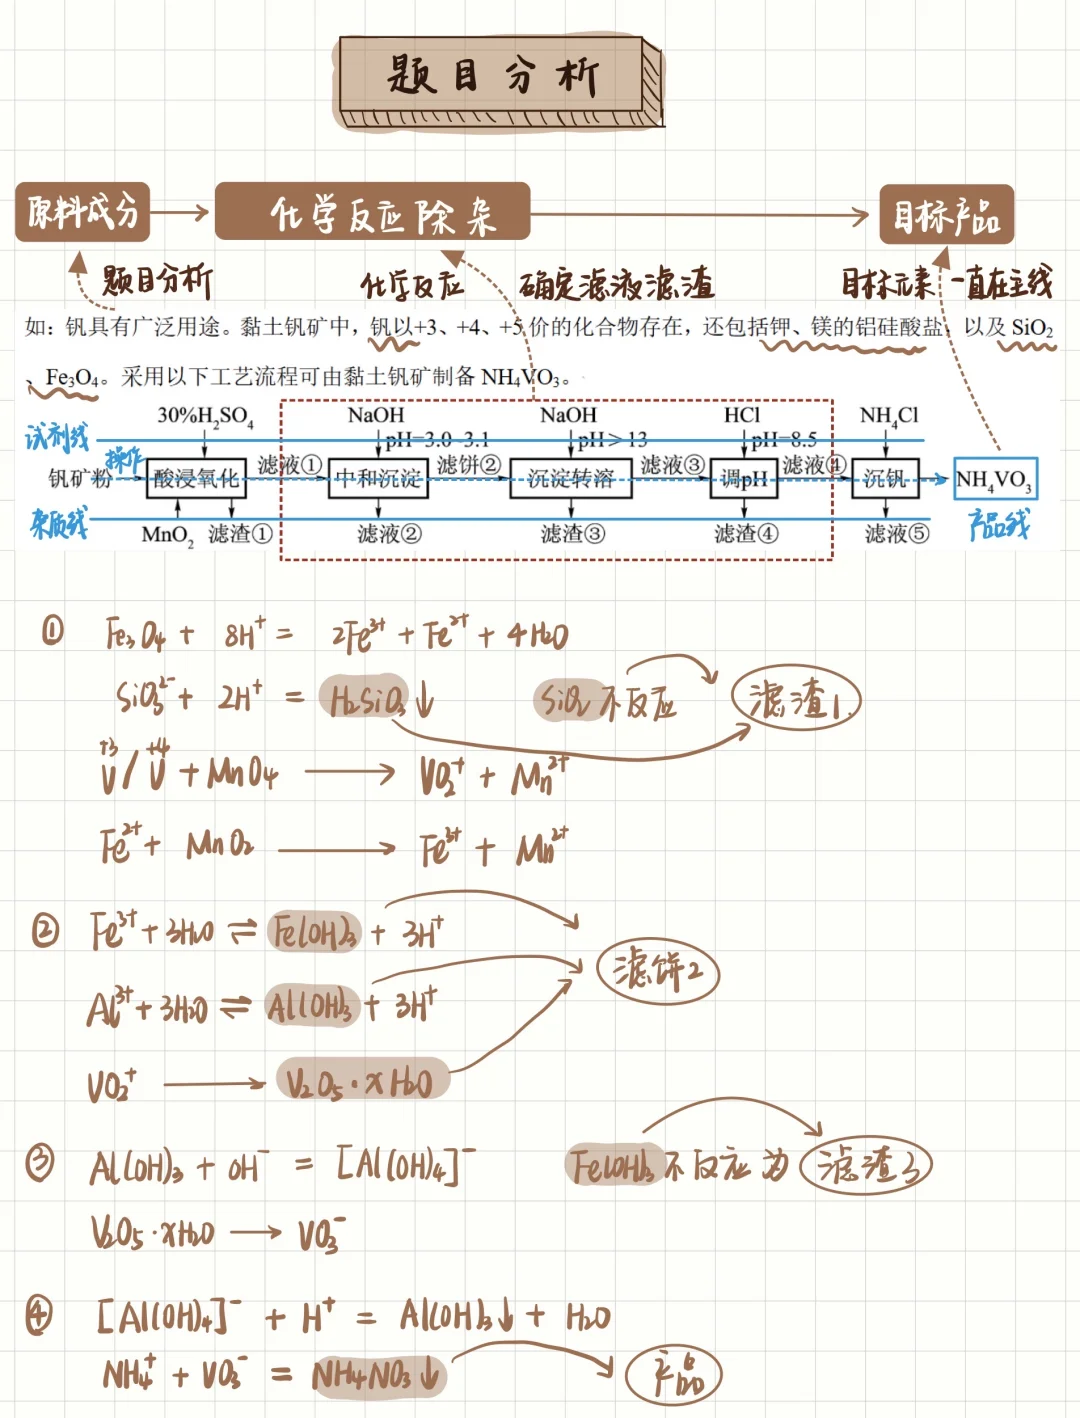 题目分析
原料成分 化学反应除杂 目标产品
题目分析 化学反应 确定滤液滤渣 目标元素一直在主线
如：钒具有广泛用途。黏土钒矿中，钒以+3、+4、+5价的化合物存在，还包括钾、镁的铝硅酸盐，以及SiO₂
、Fe₃O₄。采用以下工艺流程可由黏土钒矿制备NH₄VO₃。
30%H₂SO₄ NaOH NaOH HCl NH₄Cl
试剂线 pH=3.0~3.1 pH>13 pH=8.5
操作 滤液① 滤饼② 滤液③ 滤液④
钒矿粉 酸浸氧化 中和沉淀 沉淀转溶 调pH 沉钒 NH₄VO₃
杂质线 MnO₂ 滤渣① 滤液② 滤渣③ 滤渣④ 滤液⑤ 产品线
① Fe₃O₄ + 8H⁺ = 2Fe³⁺ + Fe²⁺ + 4H₂O
SiO₃²⁻ + 2H⁺ = H₂SiO₃↓ SiO₂不反应 滤渣1.
+3 +4
V / V + MnO₄ → VO₂⁺ + Mn²⁺
Fe²⁺ + MnO₂ → Fe³⁺ + Mn²⁺
② Fe³⁺ + 3H₂O ⇌ Fe(OH)₃ + 3H⁺
滤饼2
Al³⁺ + 3H₂O ⇌ Al(OH)₃ + 3H⁺
VO₂⁺ → V₂O₅·xH₂O
③ Al(OH)₃ + OH⁻ = [Al(OH)₄]⁻ Fe(OH)₃不反应为 滤渣3
V₂O₅·xH₂O → VO₃⁻
④ [Al(OH)₄]⁻ + H⁺ = Al(OH)₃↓ + H₂O
NH₄⁺ + VO₃⁻ = NH₄NO₃↓ 产品